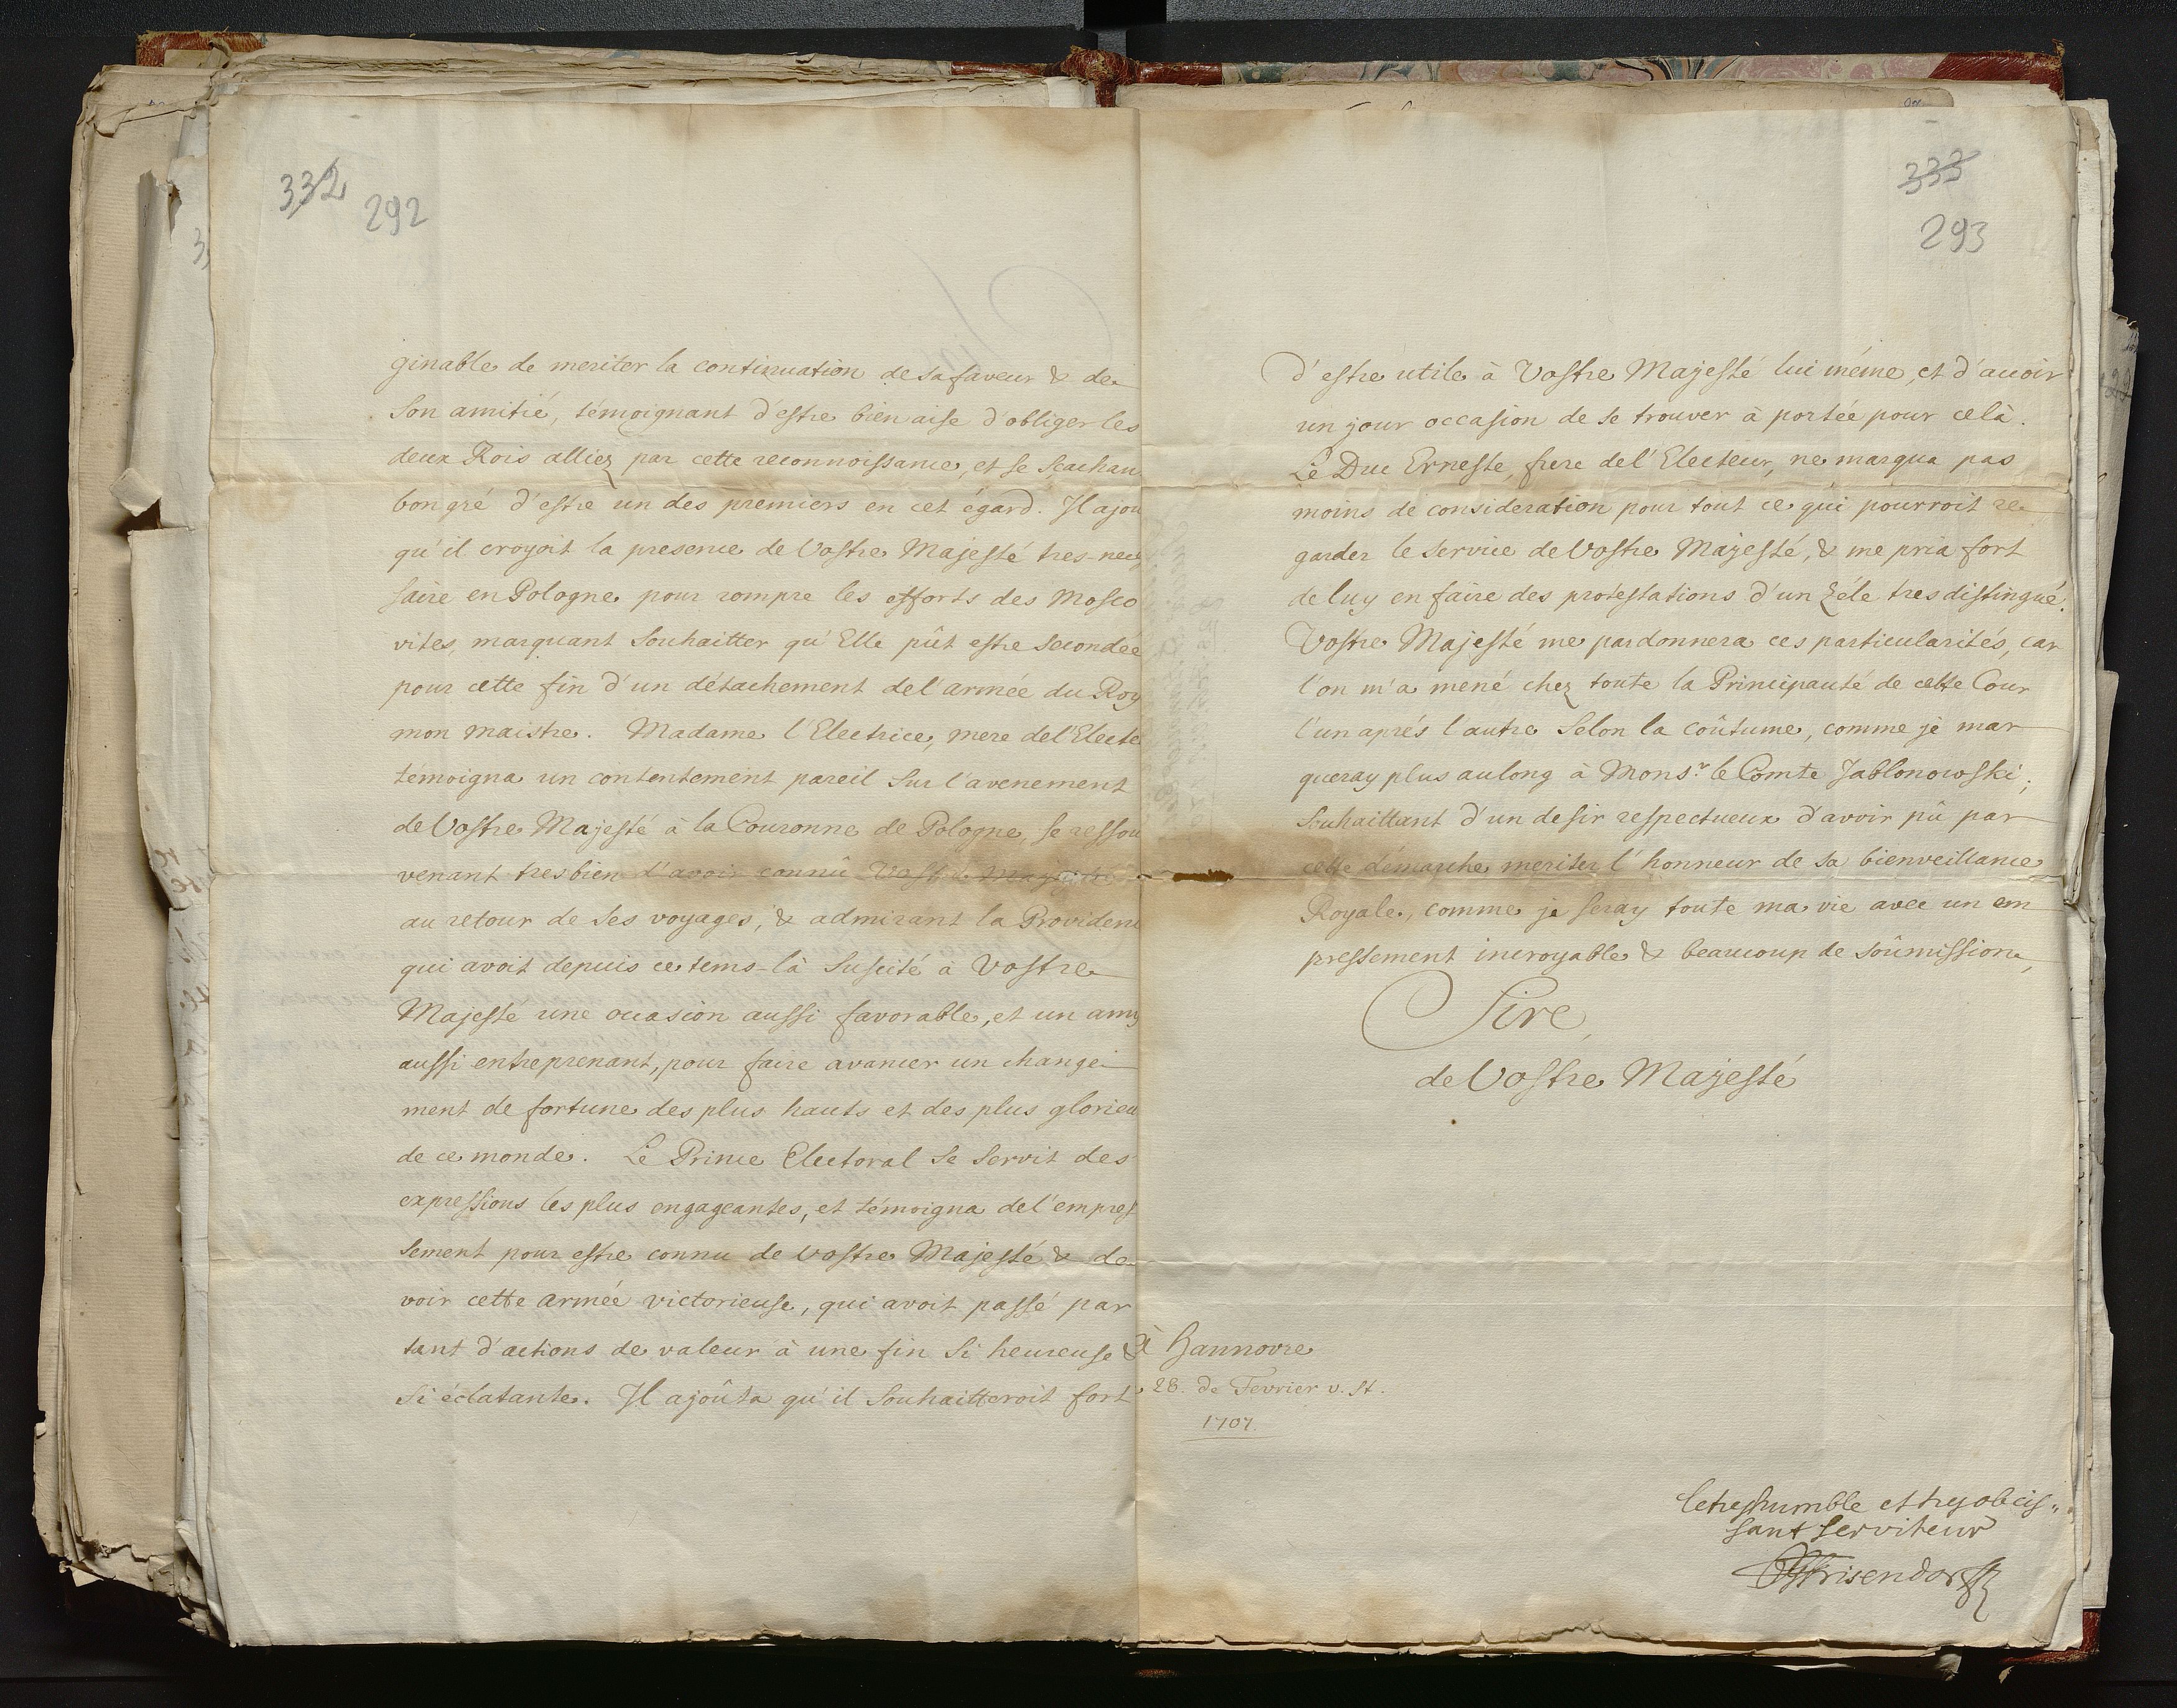 332
292
ginable de meriter la continuation de sa faveur & de
son amitié, témoignant d'estre bien aise d'obliger les
deux Rois alliez par cette reconnoissance, et se scachan
bon gré d'estre un des premiers en cet égard. Il ajou
qu'il croyoit la presence de Vostre Majesté tres-neces
saire en Pologne pour rompre les efforts des Mosco
vites, marquant souhaitter qu'Elle pût estre secondée
pour cette fin d'un détachement de l'armée du Roy
mon maistre. Madame l'Electrice, mere de l'Electe
témoigna un contentement pareil sur l'avenement
de Vostre Majesté à la Couronne de Pologne, se ressou
venant tres bien d'avoir connû Vostre Majesté
au retour de ses voyages, & admirant la Providen
qui avoit depuis ce tems-là suscité à Vostre
Majesté une occasion aussi favorable, et un amy
aussi entreprenant, pour faire avancer un change-
ment de fortune des plus hauts et des plus glorieu
de ce monde. Le Prince Electoral se servit des
expressions les plus engageantes, et témoigna de l'empres
sement pour estre connu de Vostre Majesté & de
voir cette armée victorieuse, qui avoit passé par
tant d'actions de valeur à une fin si heureuse &
si éclatante. Il ajoûta qu'il souhaitteroit fort
333
293
d'estre utile à Vostre Majesté lui méme, et d'avoir
un jour occasion de se trouver à portée pour celà.
Le Duc Erneste, frere de l'Electeur, ne marqua pas
moins de consideration pour tout ce qui pourroit re
garder le service de Vostre Majesté, & me pria fort
de luy en faire des protestations d'un zéle tres distingué.
Vostre Majesté me pardonnera ces particularités, car
l'on m'a mené chez toute la Principauté de cette Cour
l'un aprés l'autre selon la coûtume, comme je mar
queray plus au long à Mons.r le Comte Jablonowski;
souhaittant d'un desir respectueux d'avoir pû par
cette démarche meriter l'honneur de sa bienveillance
Royale, comme je seray toute ma vie avec un em
pressement incroyable & beaucoup de soûmission,
Sire,
de Vostre Majesté
à Hannovre
28. de Fevrier v. st.
1707.
le tres humble et tres obeis„
sant serviteur
Friesendorff